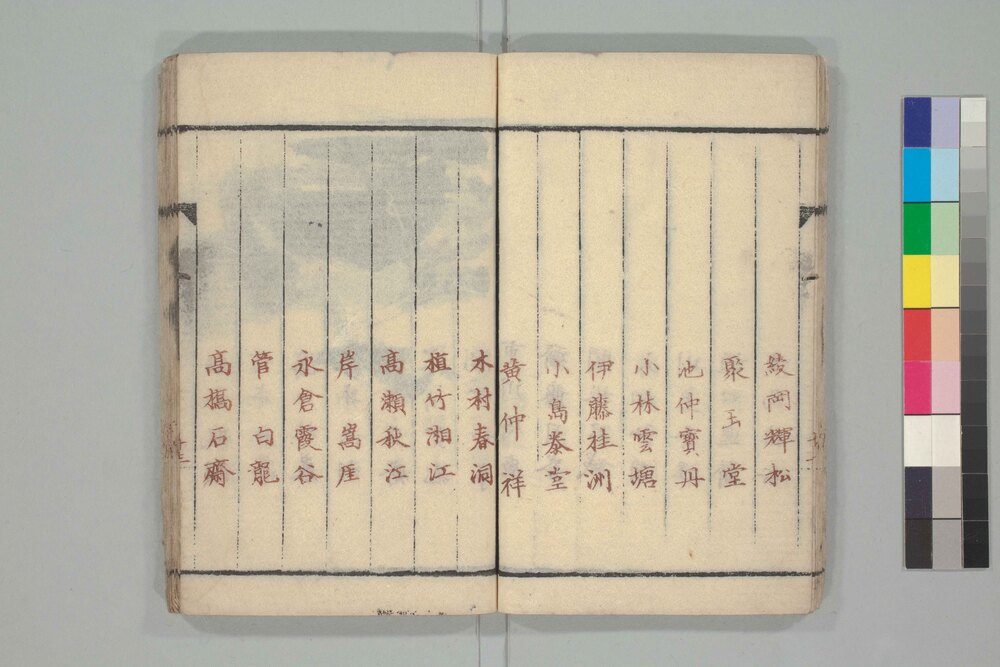 綾岡輝松
聚玉堂
池仲寳丹
小林雲塘
伊藤桂洲
小島泰堂
黄仲祥
木村春洞
植竹湘江
髙瀬秋江
岸嵩厓
永倉霞谷
管白龍
髙橋石齋